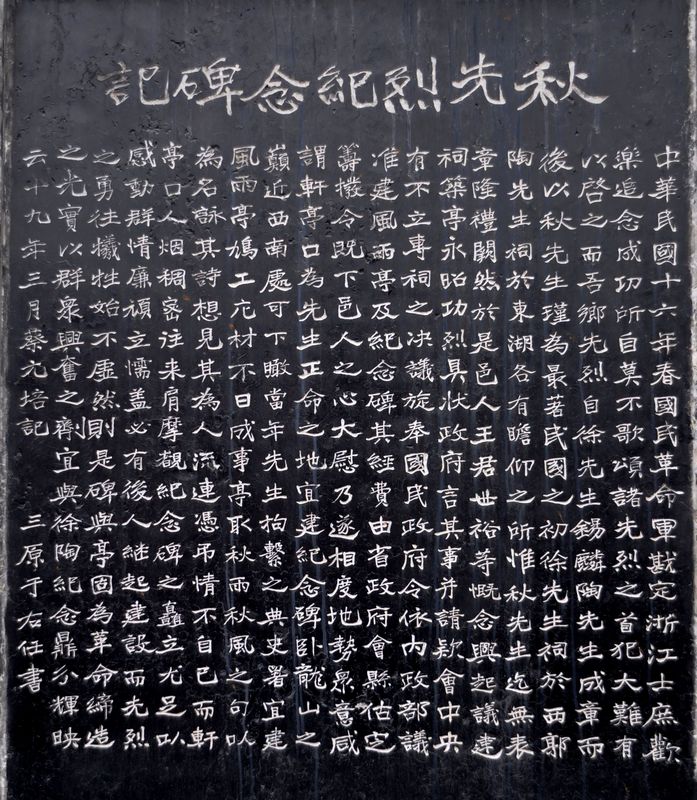 秋先烈紀念碑記
中華民國十六年春國民革命軍戡定浙江士庶歡
樂追念成功所自莫不歌頌諸先烈之首犯大難有
以啓之而吾鄉先烈自徐先生錫麟陶先生成章而
後以秋先生瑾為最著民國之初徐先生祠於西郭
陶先生祠於東湖各有瞻仰之所惟秋先生迄無表
章隆禮闕然於是邑人王君世裕等慨念興起議建
祠築亭永昭功烈具狀政府言其事并請欵會中央
有不立專祠之决議旋奉國民政府令依內政部議
准建風雨亭及紀念碑其經費由省政府會縣估定
籌撥令既下邑人之心大慰乃遂相度地勢眾意咸
謂軒亭口為先生正命之地宜建紀念碑卧龍山之
巔近西南處可下瞰當年先生拘繫之典史署宜建
風雨亭鳩工庀材不日成事亭取秋雨秋風之句以
為名詠其詩想見其為人流連憑弔情不自已而軒
亭口人烟稠密往来肩摩觀紀念碑之矗立尤足以
感動群情廉頑立懦盖必有後人継起建設而先烈
之勇往犧牲始不虛然則是碑與亭固為革命締造
之光實以群眾興奮之劑宜與徐陶紀念鼎分輝映
云十九年三月蔡元培記 三原于右任書